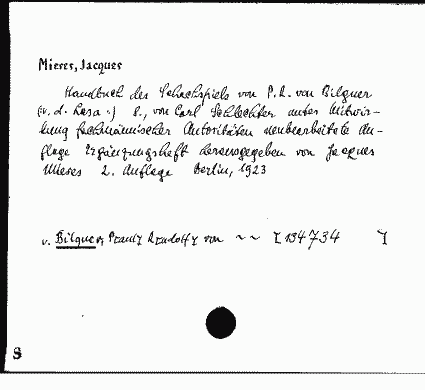 Mieses, Jacques
Handbuch des Schachspiels von P.R. von Bilguer
(v. d. Lasa.) 8., von Carl Schlechter unter Mitwir-
kung fachmännischer Autoritäten neubearbeitete Au-
flage Ergänzungsheft herausgegeben von Jacques
Mieses 2. Auflage Berlin, 1923
v. Bilguer, Rudolf von ~ ~ [134734 ]
S